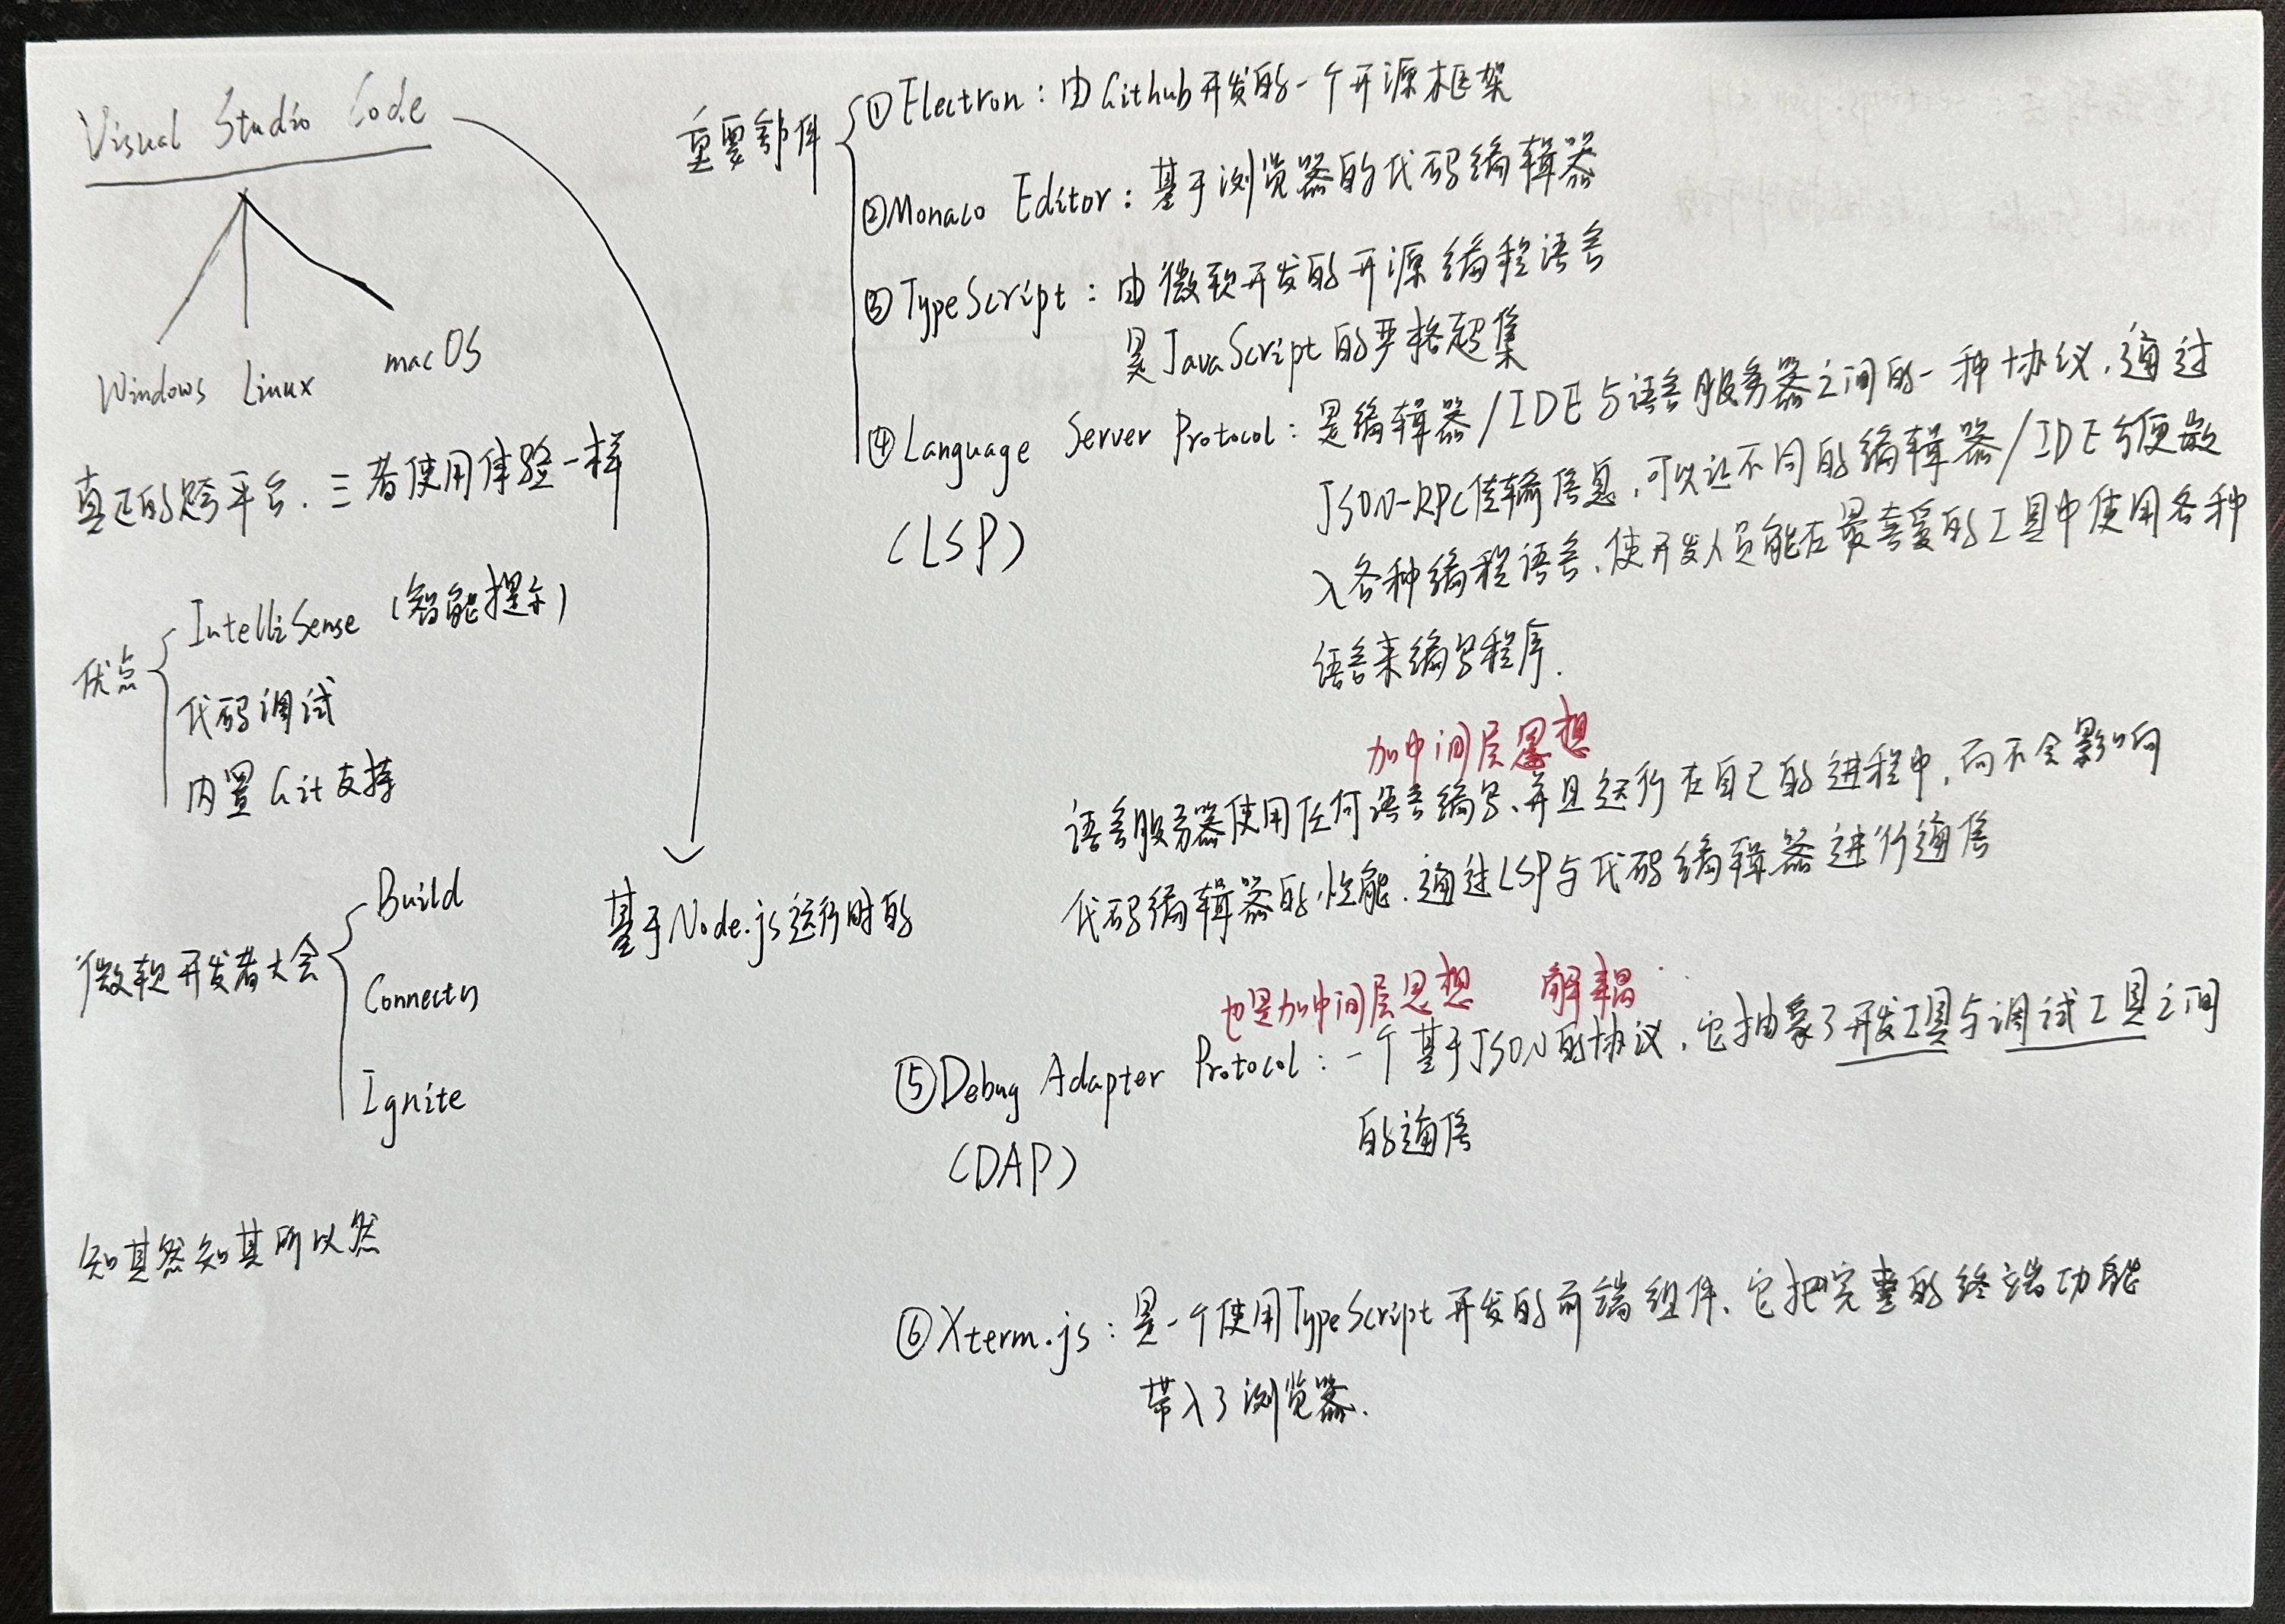 Visual Studio Code
Windows Linux macOS
真正的跨平台.三者使用体验一样
优点
IntelliSense (智能提示)
代码调试
内置Git支持
微软开发者大会
Build
Connect
Ignite
知其然知其所以然
基于Node.js运行时的
重要部件
①Electron:由Github开发的一个开源框架
②Monaco Editor:基于浏览器的代码编辑器
③TypeScript:由微软开发的开源编程语言
是JavaScript的严格超集
④Language Server Protocol:是编辑器/IDE与语言服务器之间的一种协议.通过
(LSP)
JSON-RPC传输信息,可以让不同的编辑器/IDE方便嵌
入各种编程语言.使开发人员能在最喜爱的工具中使用各种
语言来编写程序.
加中间层思想
语言服务器使用任何语言编写、并且运行在自己的进程中,而不会影响
代码编辑器的性能.通过LSP与代码编辑器进行通信
也是加中间层思想 解耦
⑤Debug Adapter Protocol:一个基于JSON的协议.它抽象了开发工具与调试工具之间
的通信
(DAP)
⑥Xterm.js:是一个使用TypeScript开发的前端组件、它把完整的终端功能
带入了浏览器.